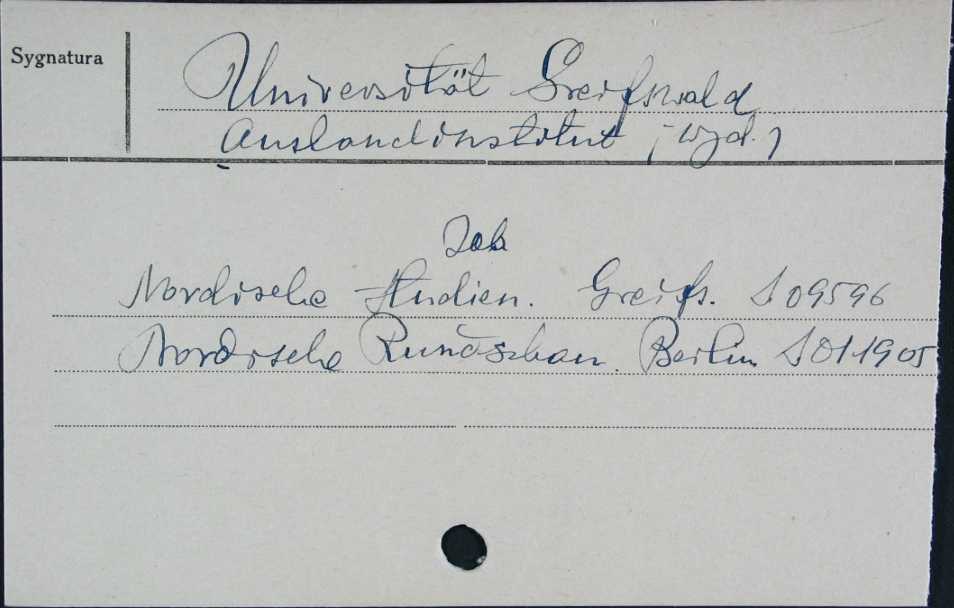 Sygnatura
Universität Greifswald
Auslandinstitut (wyd.)
Nordische Studien. Greifs. S 09596
Nordische Rundschau. Berlin S 011905